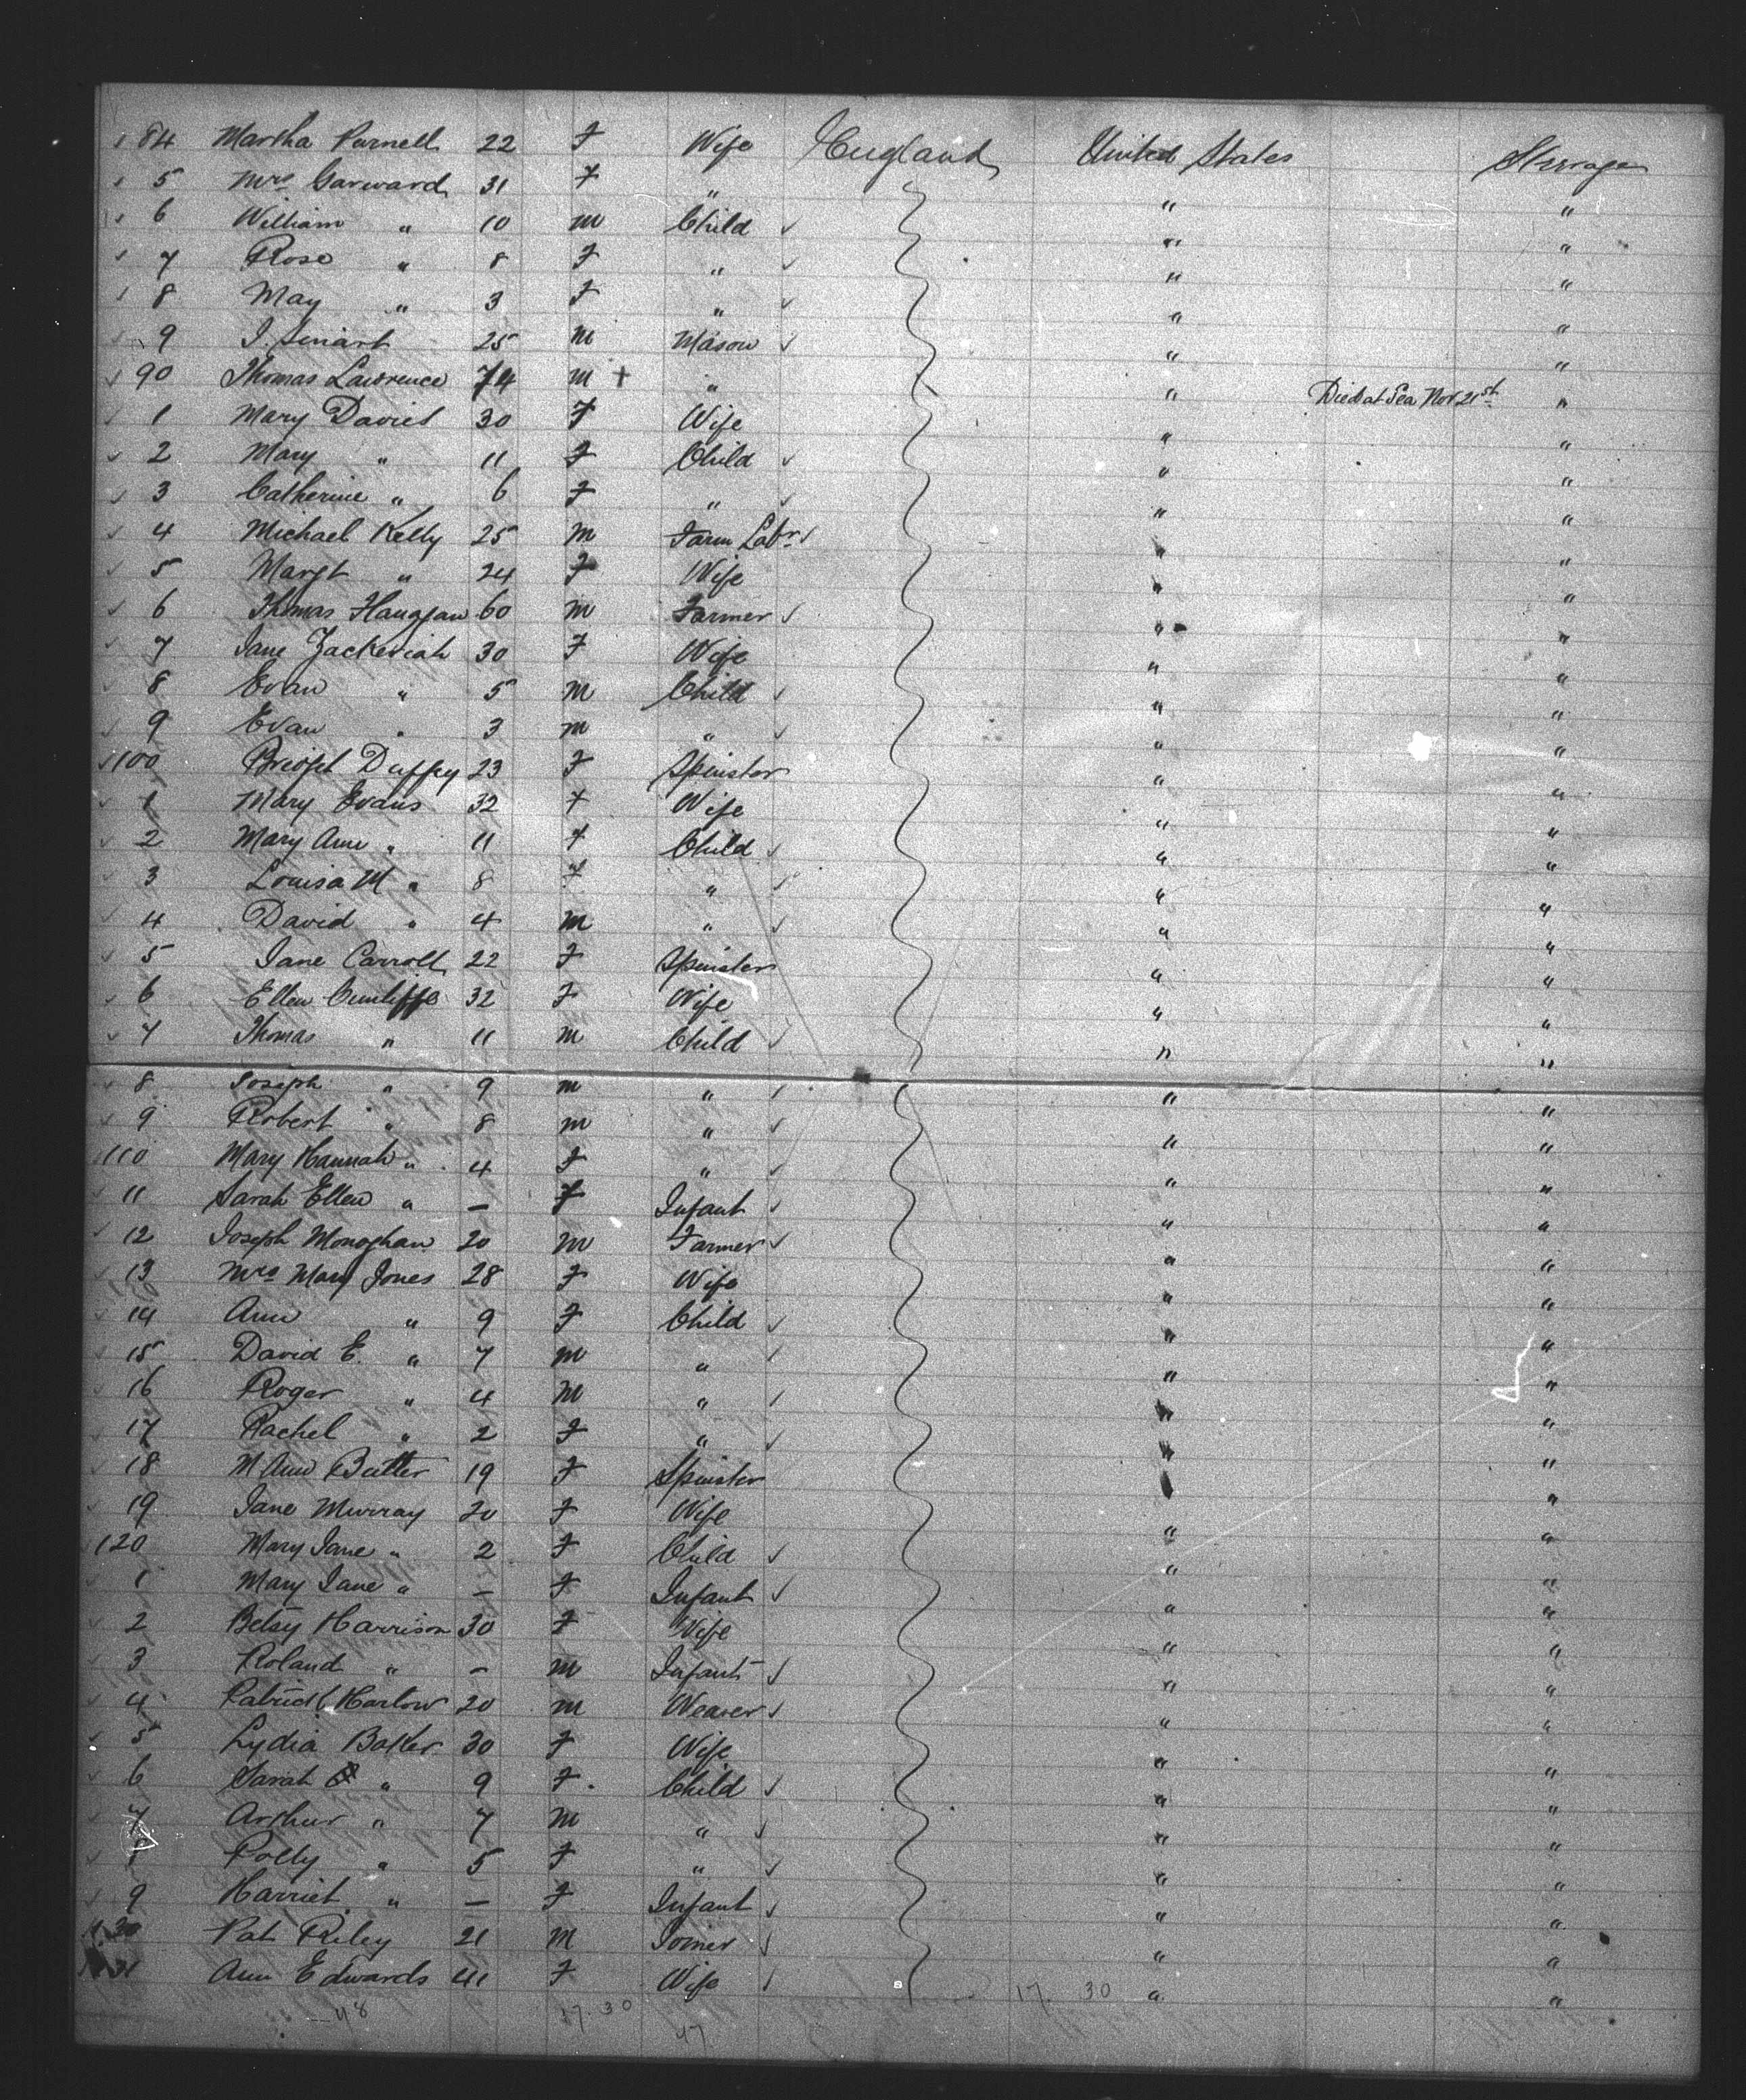 84 Martha Purnell 22 F Wife England United States Steerage
5 Mrs Garward 31 F " " "
6 William " 10 M Child " "
7 Rose " 8 F " " "
8 May " 3 F " " "
9 25 M Mason " "
90 Thomas Lawrence 74 M + " " Died at Sea Nov 21st "
1 Mary Davies 30 F Wife " "
2 Mary " 11 F Child " "
3 Catherine " 6 F " " "
4 Michael Kelly 25 M Farm Labr " "
5 Margt " 24 F Wife " "
6 Thomas Flanagan 60 M Farmer " "
7 Jane Zackeriah 30 F Wife " "
8 Evan " 5 M Child " "
9 Evan " 3 M " " "
100 Bridget Duffey 23 F Spinster " "
1 Mary Evans 32 F Wife " "
2 Mary Ann " 11 F Child " "
3 Louisa M " 8 F " " "
4 David " 4 M " " "
5 Jane Carroll 22 F Spinster " "
6 Ellen Cunliffe 32 F Wife " "
7 Thomas " 11 M Child " "
8 Joseph " 9 M " " "
9 Robert " 8 M " " "
110 Mary Hannah " 4 F " " "
11 Sarah Ellen " — F Infant " "
12 Joseph Monoghan 20 M Farmer " "
13 Mrs Mary Jones 28 F Wife " "
14 Ann " 9 F Child " "
15 David E. " 7 M " " "
16 Roger " 4 M " " "
17 Rachel " 2 F " " "
18 M Ann Butler 19 F Spinster "
19 Jane Murray 20 F Wife " "
120 Mary Jane " 2 F Child " "
1 Mary Jane " — F Infant " "
2 Betsy Harrison 30 F Wife " "
3 Roland " — M Infant " "
4 Patrick Harlow 20 M Weaver " "
5 Lydia Baker 30 F Wife " "
6 Sarah " 9 F Child " "
7 Arthur " 7 M " " "
Polly " 5 F " " "
9 Harriet " — F Infant " "
130 Pat Riley 21 M Joiner " "
31 Ann Edwards 41 F Wife " "
48 17.30 47 17. 30